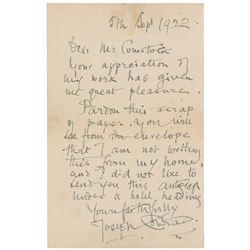 5th Sept 1922
Dear Mr Comstock
Your appreciation of
my work has given
me great pleasure.
Pardon this scrap
of paper. You will
see from the envelope
that I am not writing
this from my home,
and I did not like to
send you this autograph
under a hotel heading
Yours faithfully
Joseph Conrad